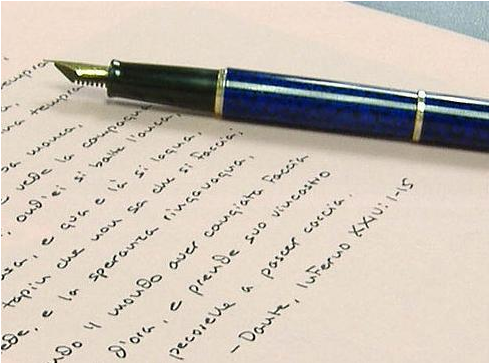 tempra
manca,
vede la campagna
ond'ei si batte l'anca,
e qua e là si lagna,
tapin che non sa che si faccia;
e la speranza ringavagna,
'l mondo aver cangiata faccia
d'ora, e prende suo vincastro
pecorelle a pascer caccia.
– Dante, Inferno XXIV: 1-15